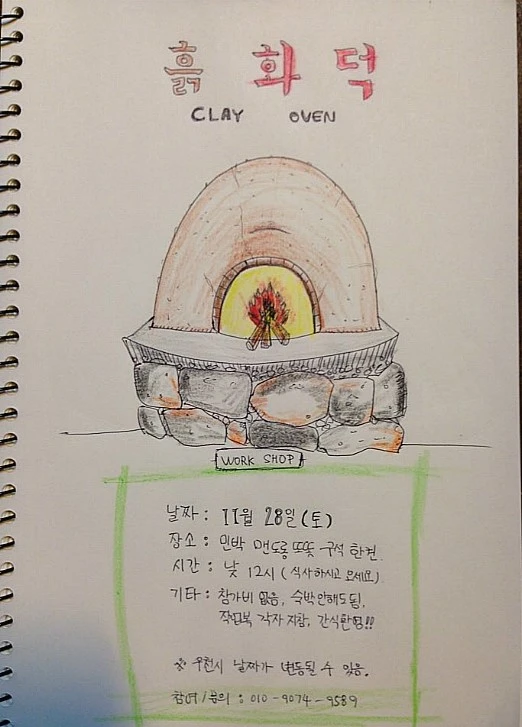 흙 화 덕
CLAY OVEN
WORK SHOP
날짜 : 11월 28일 (토)
장소 : 민박 맨도롱또똣 구석 한켠.
시간 : 낮 12시 (식사하시고 오세요)
기타 : 참가비 없음, 숙박안해도됨,
작업복 각자 지참, 간식환영!!
※ 우천시 날짜가 변동될 수 있음.
참여/문의 : 010-9074-9589